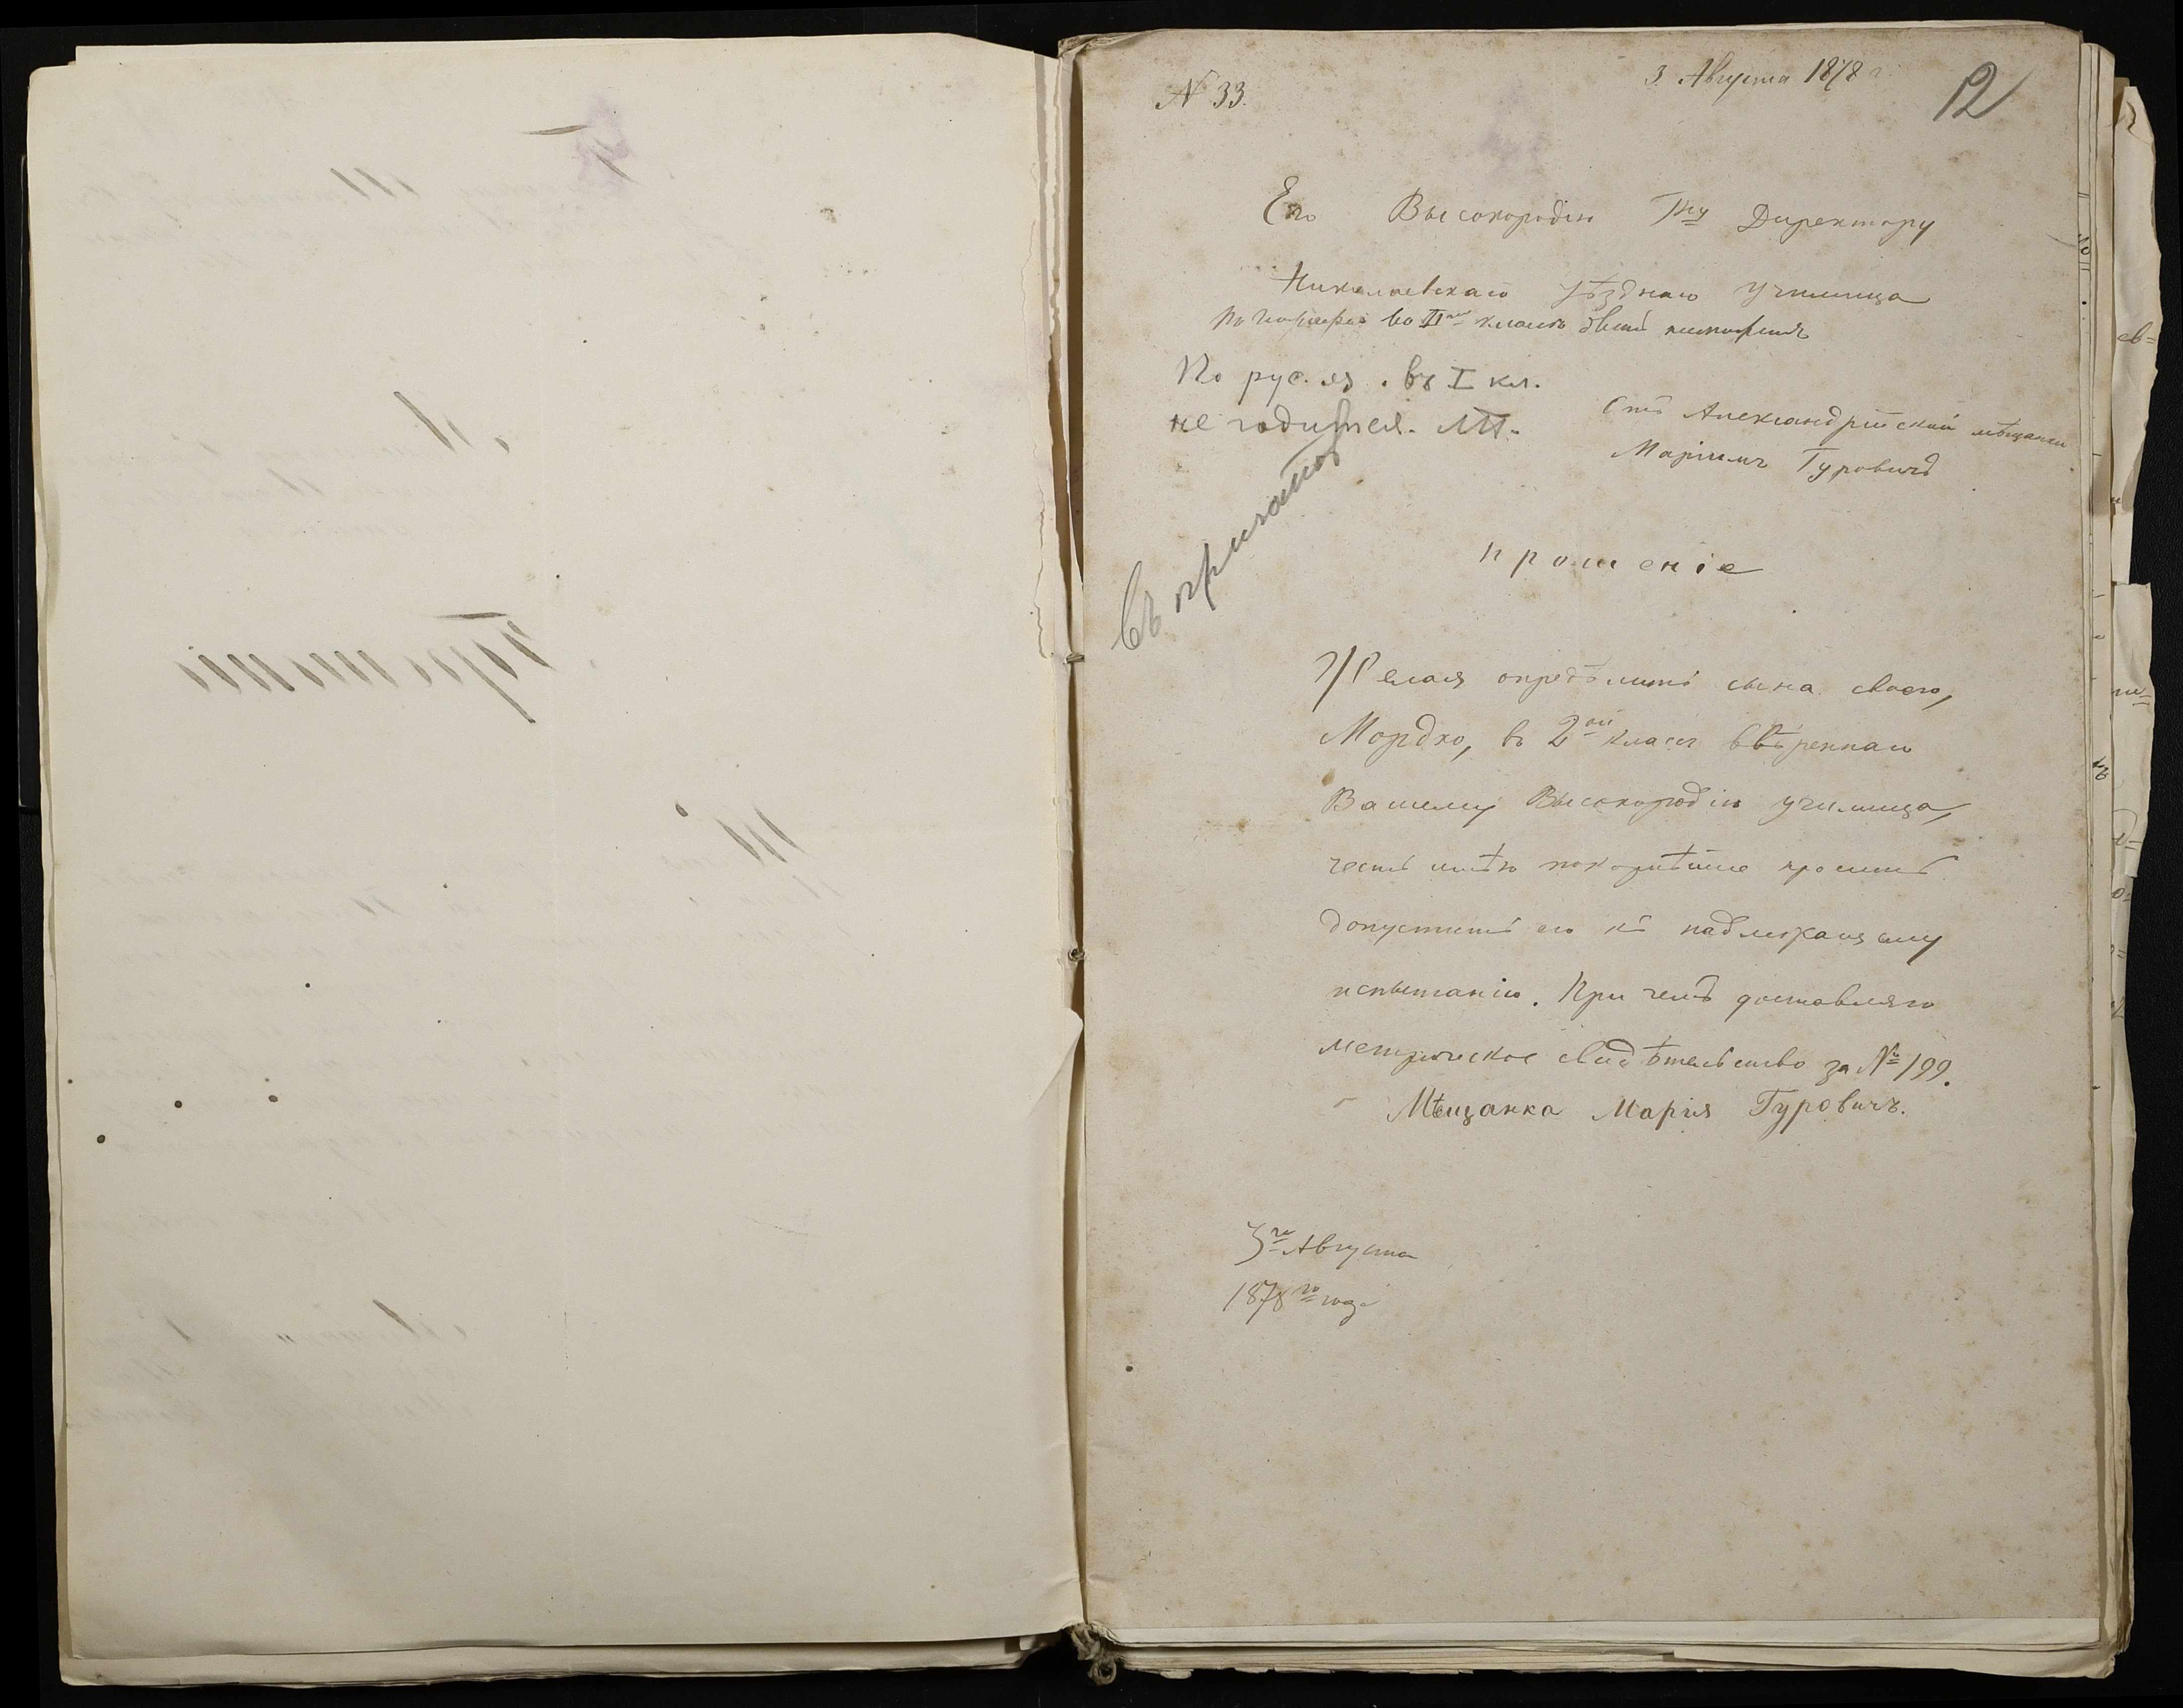 3 Августа 1878 г.
№ 33.
12
Его Высокородію Гну Директору
Николаевскаго Уѣзднаго Училища
во II классъ
По рус. яз. въ I кл.
не годится.
Отъ Александрійской мѣщанки
Маріимъ Гуровичъ
Въ пригот
прошеніе
Желая опредѣлить сына своего,
Мордко, въ 2ой классъ ввѣреннаго
Вашему Высокородію училища,
честь имѣю покорнѣйше просить
допустить его къ надлежащему
испытанію. При чемъ доставляю
метрическое свидѣтельство за № 199.
Мѣщанка Марія Гуровичъ.
3го Августа
1878го года